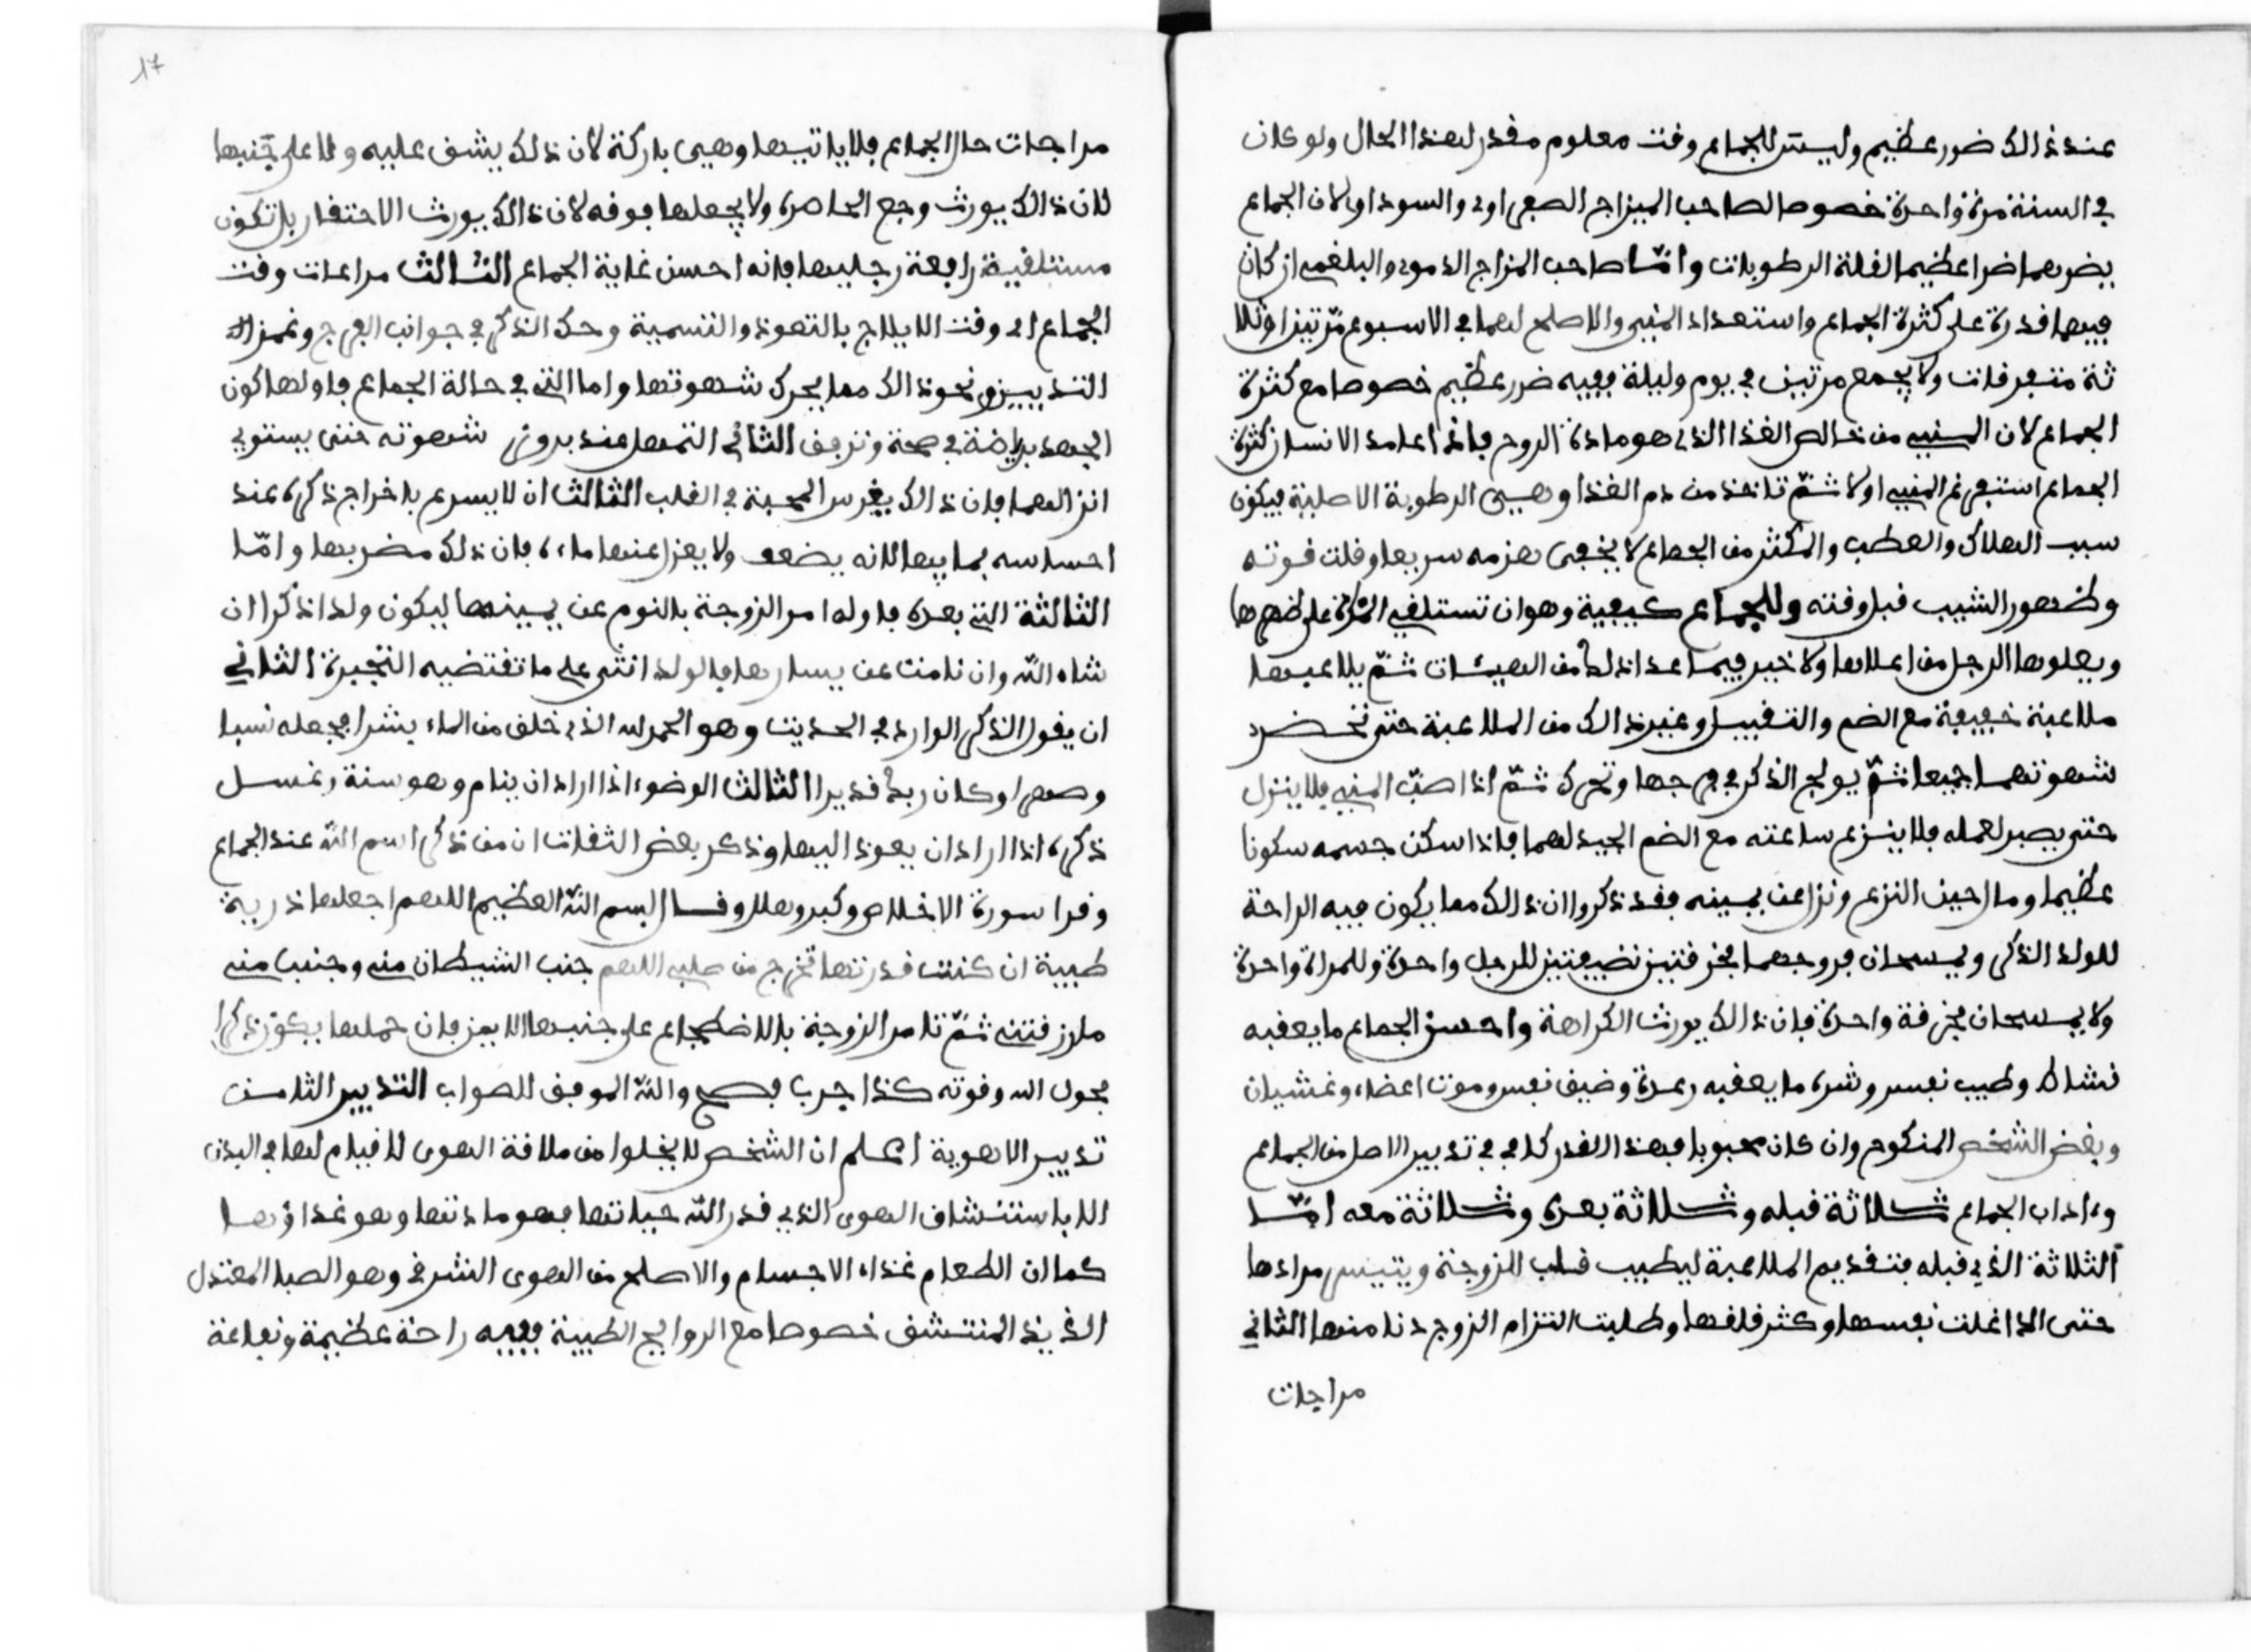 عند ذالك ضرر عظيم وليس للجماع وقت معلوم مقدر لهذا الحال ولو كان
في السنة مرة واحدة خصوصا لصاحب الميزاج الصفراوي والسوداوي لان الجماع
يضرهما ضرا عظيما لقلة الرطوبات وامّا صاحب المزاج الدموي والبلغمي ان كان
فيهما قدرة على كثرة الجماع واستعداد المني والاصلح لهما في الاسبوع مرّتين او ثلا
ثة متفرقات ولا يجمع مرتين في يوم وليلة ففيه ضرر عظيم خصوصا مع كثرة
الجماع لان المني من خالص الغذا الذي هو مادة الروح فاذا اعامد الانسان كثرة
الجماع استفرغ المني اولا ثمّ تاخذ من دم الغذا وهيى الرطوبة الاصلية فيكون
سبب الهلاك والعطب والمكثر من الجماع لا يخفى هزمه سريعا وقلت قوته
وظهور الشيب قبل وقته وللجماع كيفية وهو ان تستلقي المرة على ظهرها
ويعلوها الرجل من اعلاها ولا خير فيما عدا ذلك من الهيئات ثمّ يلاعبها
ملاعبة خفيفة مع الضم والتقبيل وغير ذالك من الملاعبة حتى تحضر
شهوتهما جميعا ثمّ يولج الذكر في فرجها وتحرك ثمّ اذا صبّ المني فلا ينزل
حتى يصبر لعمله فلا ينزع ساعته مع الضم الجيد لهما فاذا سكن جسمه سكونا
عظيما ومال حين النزع ونزل عن يمينه فقد ذكروا ان ذالك مما يكون فيه الراحة
للولد الذكر ويمسحان فروجهما بخرقتين نضيفتين للرجل واحدة وللمراة واحدة
ولا يمسحان بخرقة واحدة فان ذالك يورث الكراهة واحسن الجماع ما يعقبه
نشاط وطيب نفس وشره ما يعقبه رعدة وضيق نفس وموت اعضاء وغشيان
وبغض الشخص المنكوح وان كان محبوبا فهذا القدر كاف في تدبير الاصل من الجماع
وءاداب الجماع ثلاثة قبله وثلاثة بعده وثلاثة معه امّا
الثلاثة الذي قبله فتقديم الملاعبة ليطيب قلب الزوجة ويتيسر مرادها
حتى اذا غلت نفسها وكثر قلقها وطلبت التزام الزوج دنا منها الثاني
مراعات
17
مراعات حال الجماع فلا ياتيها وهيى باركة لان ذلك يشق عليه ولا على جنبها
لان ذالك يورث وجع الخاصرة ولا يجعلها فوقه لان ذالك يورث الاحتقار بل تكون
مستلقية رافعة رجليها فانه احسن غاية الجماع الثالث مراعات وقت
الجماع اي وقت الايلاج بالتعوذ والتسمية وحك الذكر في جوانب الفرج وغمز
الثديين ونحو ذالك مما يحرك شهوتها واما التي في حالة الجماع فاولها كون
الجهد برياضة في صحة وترفق الثاني التمهل عند بروز شهوته حتى يستوفي
انزالهما فان ذالك يغرس المحبة في القلب الثالث ان لا يسرع باخراج ذكره عند
احساسه بمايها لانه يضعف ولا يعزل عنها ماءه فان ذلك مضر بها وامّا
الثالثة التي بعده فاوله امر الزوجة بالنوم عن يمينها ليكون ولدا ذكرا ان
شاء اللّه وان نامت عن يسارها فالولد انثى على ما تقتضيه التجبرة الثاني
ان يقول الذكر الوارد في الحديث وهو الحمد لله الذي خلق من الماء بشرا فجعله نسبا
وصهرا وكان ربك قديرا الثالث الوضوء اذا اراد ان ينام وهو سنة وغسل
ذكره اذا اراد ان يعوذ اليها وذكر بعض الثقات ان من ذكر اسم اللّه عند الجماع
وقرا سورة الاخلاص وكبر وهلل وقال بسم اللّه العظيم اللهم اجعلها ذرية
طيبة ان كنت قدرتها تخرج من صلبي اللهم جنب الشيطان مني وجنب مني
مارزقتني ثمّ تامر الزوجة بالاضطجاع على جنبها الايمن فان حملها يكون ذكرا
بحول الله وقوته كذا جرب فصح واللّه الموفق للصواب التدبير الثامن
تدبير الاهوية اعلم ان الشخص لا يخلوا من ملاقة الهوى لا قيام لها في البدن
الا باستنشاق الهوى الذي قدر اللّه حياتها فهو مادتها وهو غذاؤها
كما ان الطعام غذاء الاجسام والاصلح من الهوى الشرقي وهو الصبا المعتدل
الذيذ المنتشق خصوصا مع الروايح الطيبة ففيه راحة عظيمة ونفاعة